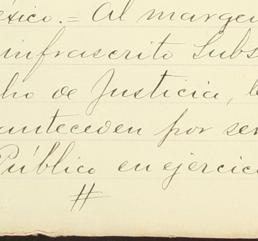 éxico. = Al margen
infrascrito Subs
cho de Justicia, l
anteceden por ser
Público en ejercic
#